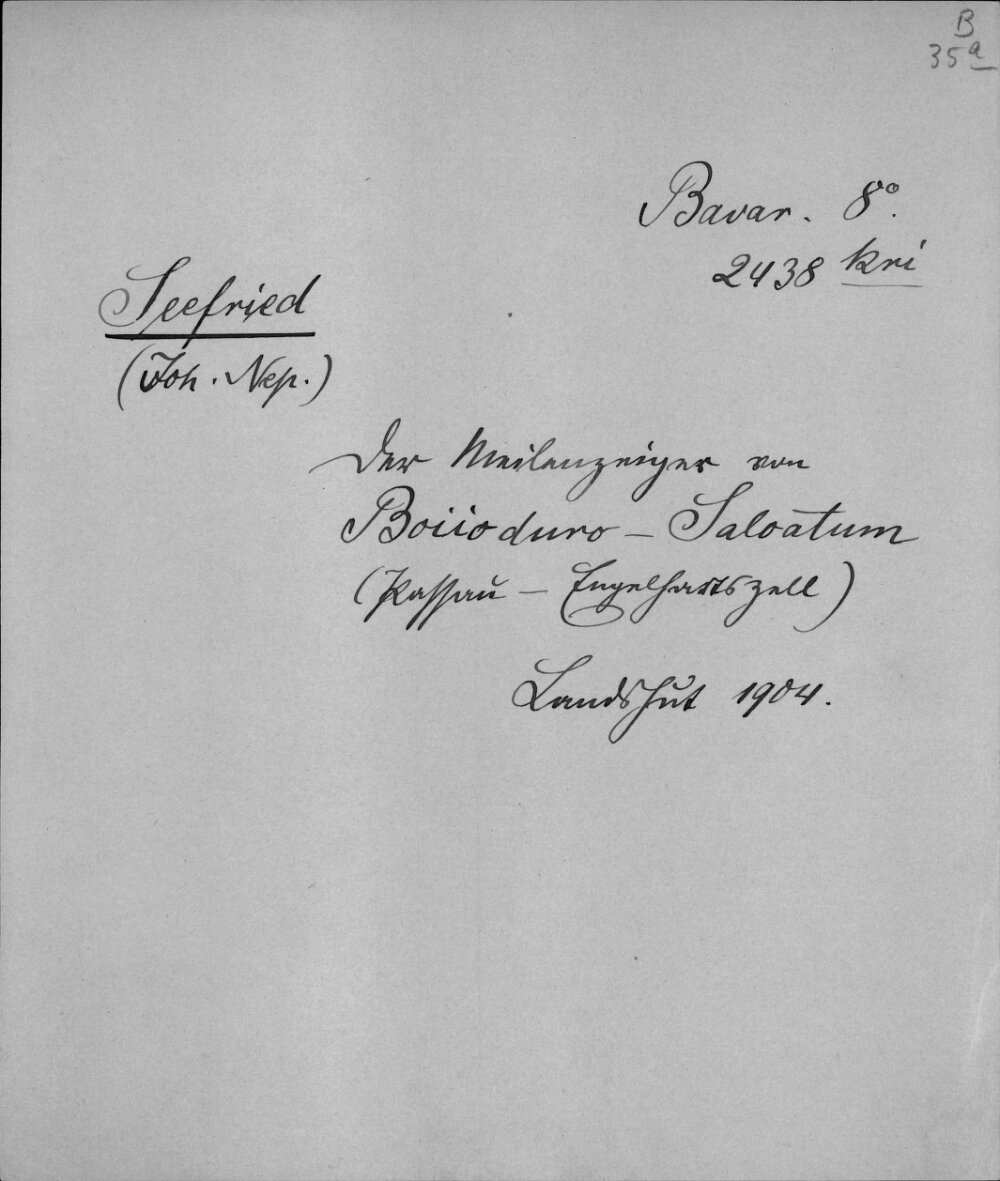 B
35a
Bavar. 8°.
2438 kri
Seefried
(Joh. Nep.)
Der Meilenzeiger von
Boiioduro – Saloatum
(Passau – Engelhartszell)
Landshut 1904.